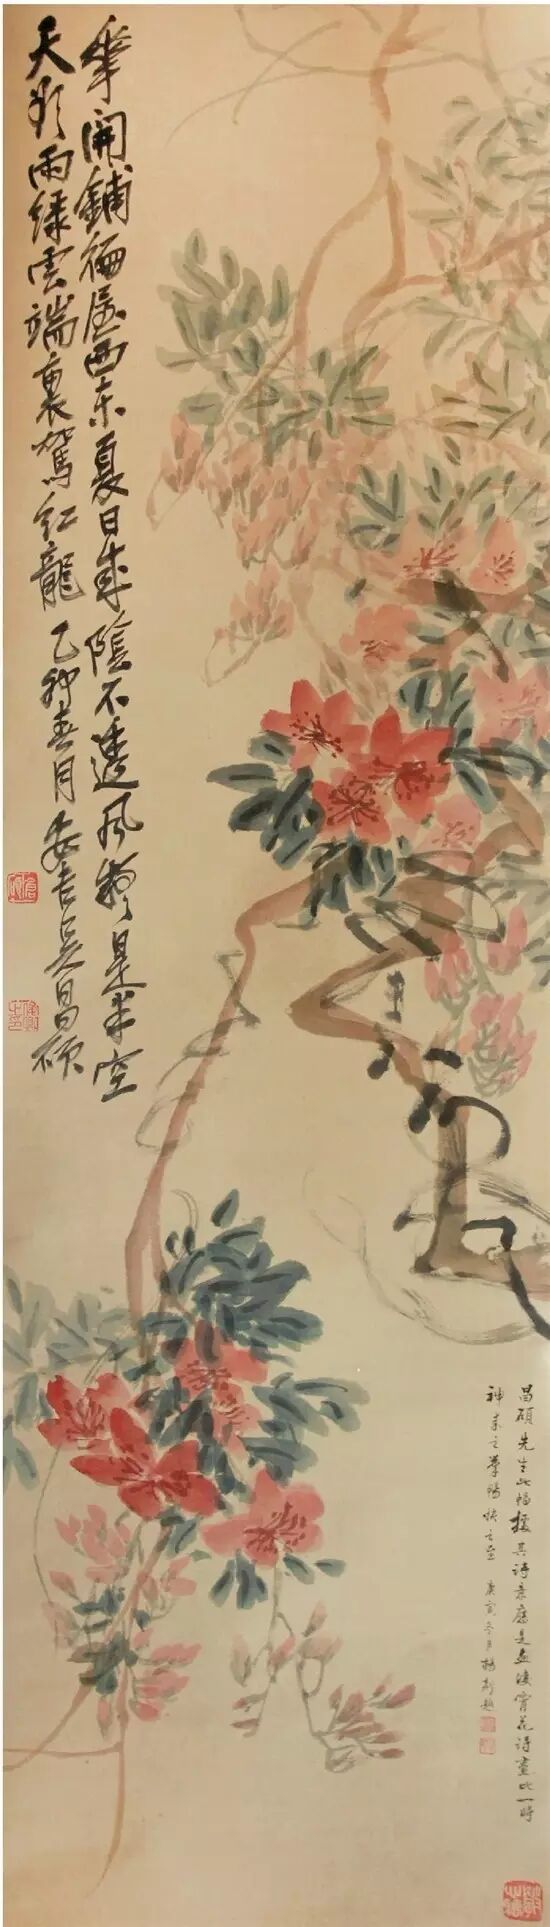 華開鋪徧屋西東夏日成陰不透風疑是半空
天欲雨綠雲端裏駕紅龍 乙卯春月安吉吳昌碩
昌碩先生此幅據其詩意應是畫凌霄花詩畫此一時
神來之筆暢快之至 庚寅冬月楊